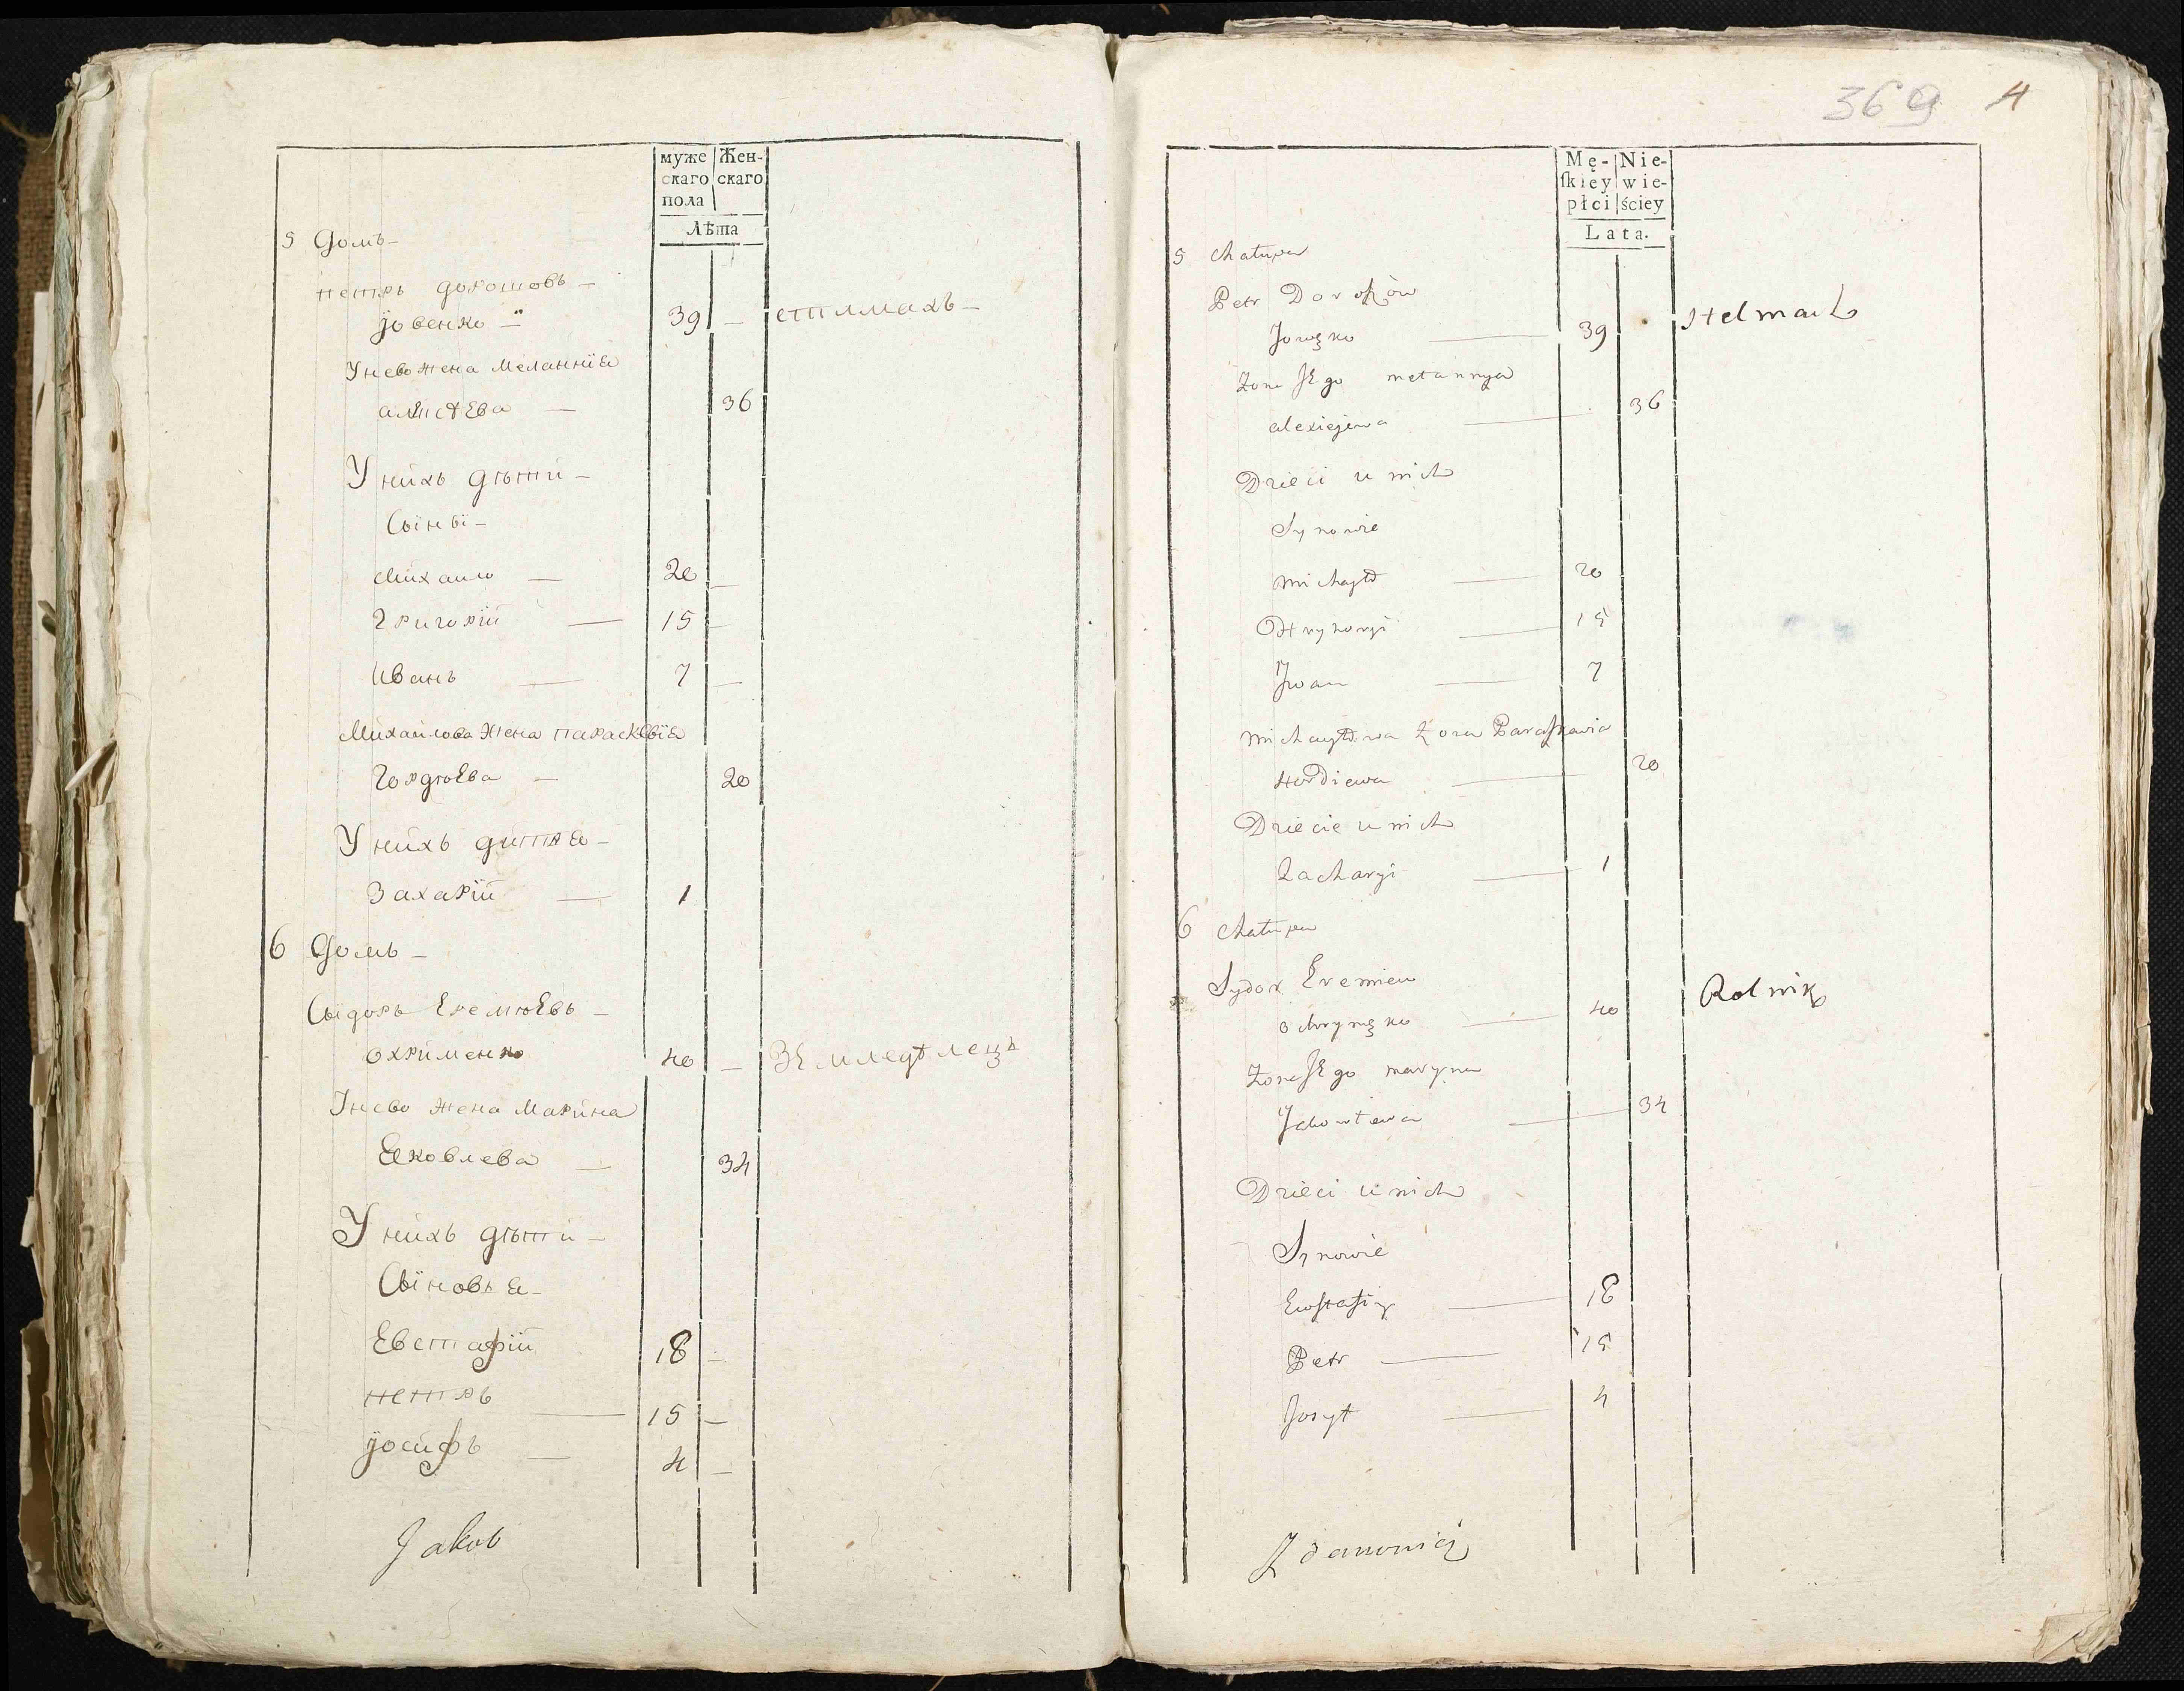 муже
скаго
пола
Жен-
скаго
Лѣта
5 Домъ-
петръ дорошовъ-
Іовенко-
39 - стлмахъ-
Унево жена Меланнія
алксѣева - 36
Унихъ дѣти-
Сыны-
Михаило - 20 -
Григорій - 15 -
Иванъ - 7 -
Михаилова жена параскевія
Гордѣева - 20
Унихъ дитя-
Захарій - 1
6 Домъ-
Сыдоръ Еремѣевъ-
охрименко 40 - Земледѣлецъ
Унево жена Марина
Яковлева - 34
Унихъ дѣти-
Сыновья-
Евстафій 18 -
петръ - 15 -
Іосифъ - 4 -
Jakob
369 4
Mę-
skiey
płci
Nie-
wie-
ściey
Lata.
5 Chałupa
Petr Doroszów
Jowęko - 39 Stelmach
Żona Jego Mełannya
alexiejewa - 36
Dzieci u nich
Synowie
Michayło - 20
Hryhoryi - 15
Jwan - 7
Michayłowa Żona Paraskawia
Hordiewa - 20
Dziecie u nich
Zacharyi - 1
6 Chałupa
Sydor Eremiew
ochrymęko - 40 Rolnik
Żona Jego maryna
Jakowlewa - 34
Dzieci u nich
Synowie
Ewstafiy - 18
Petr - 15
Josyf - 4
Zdanowicz